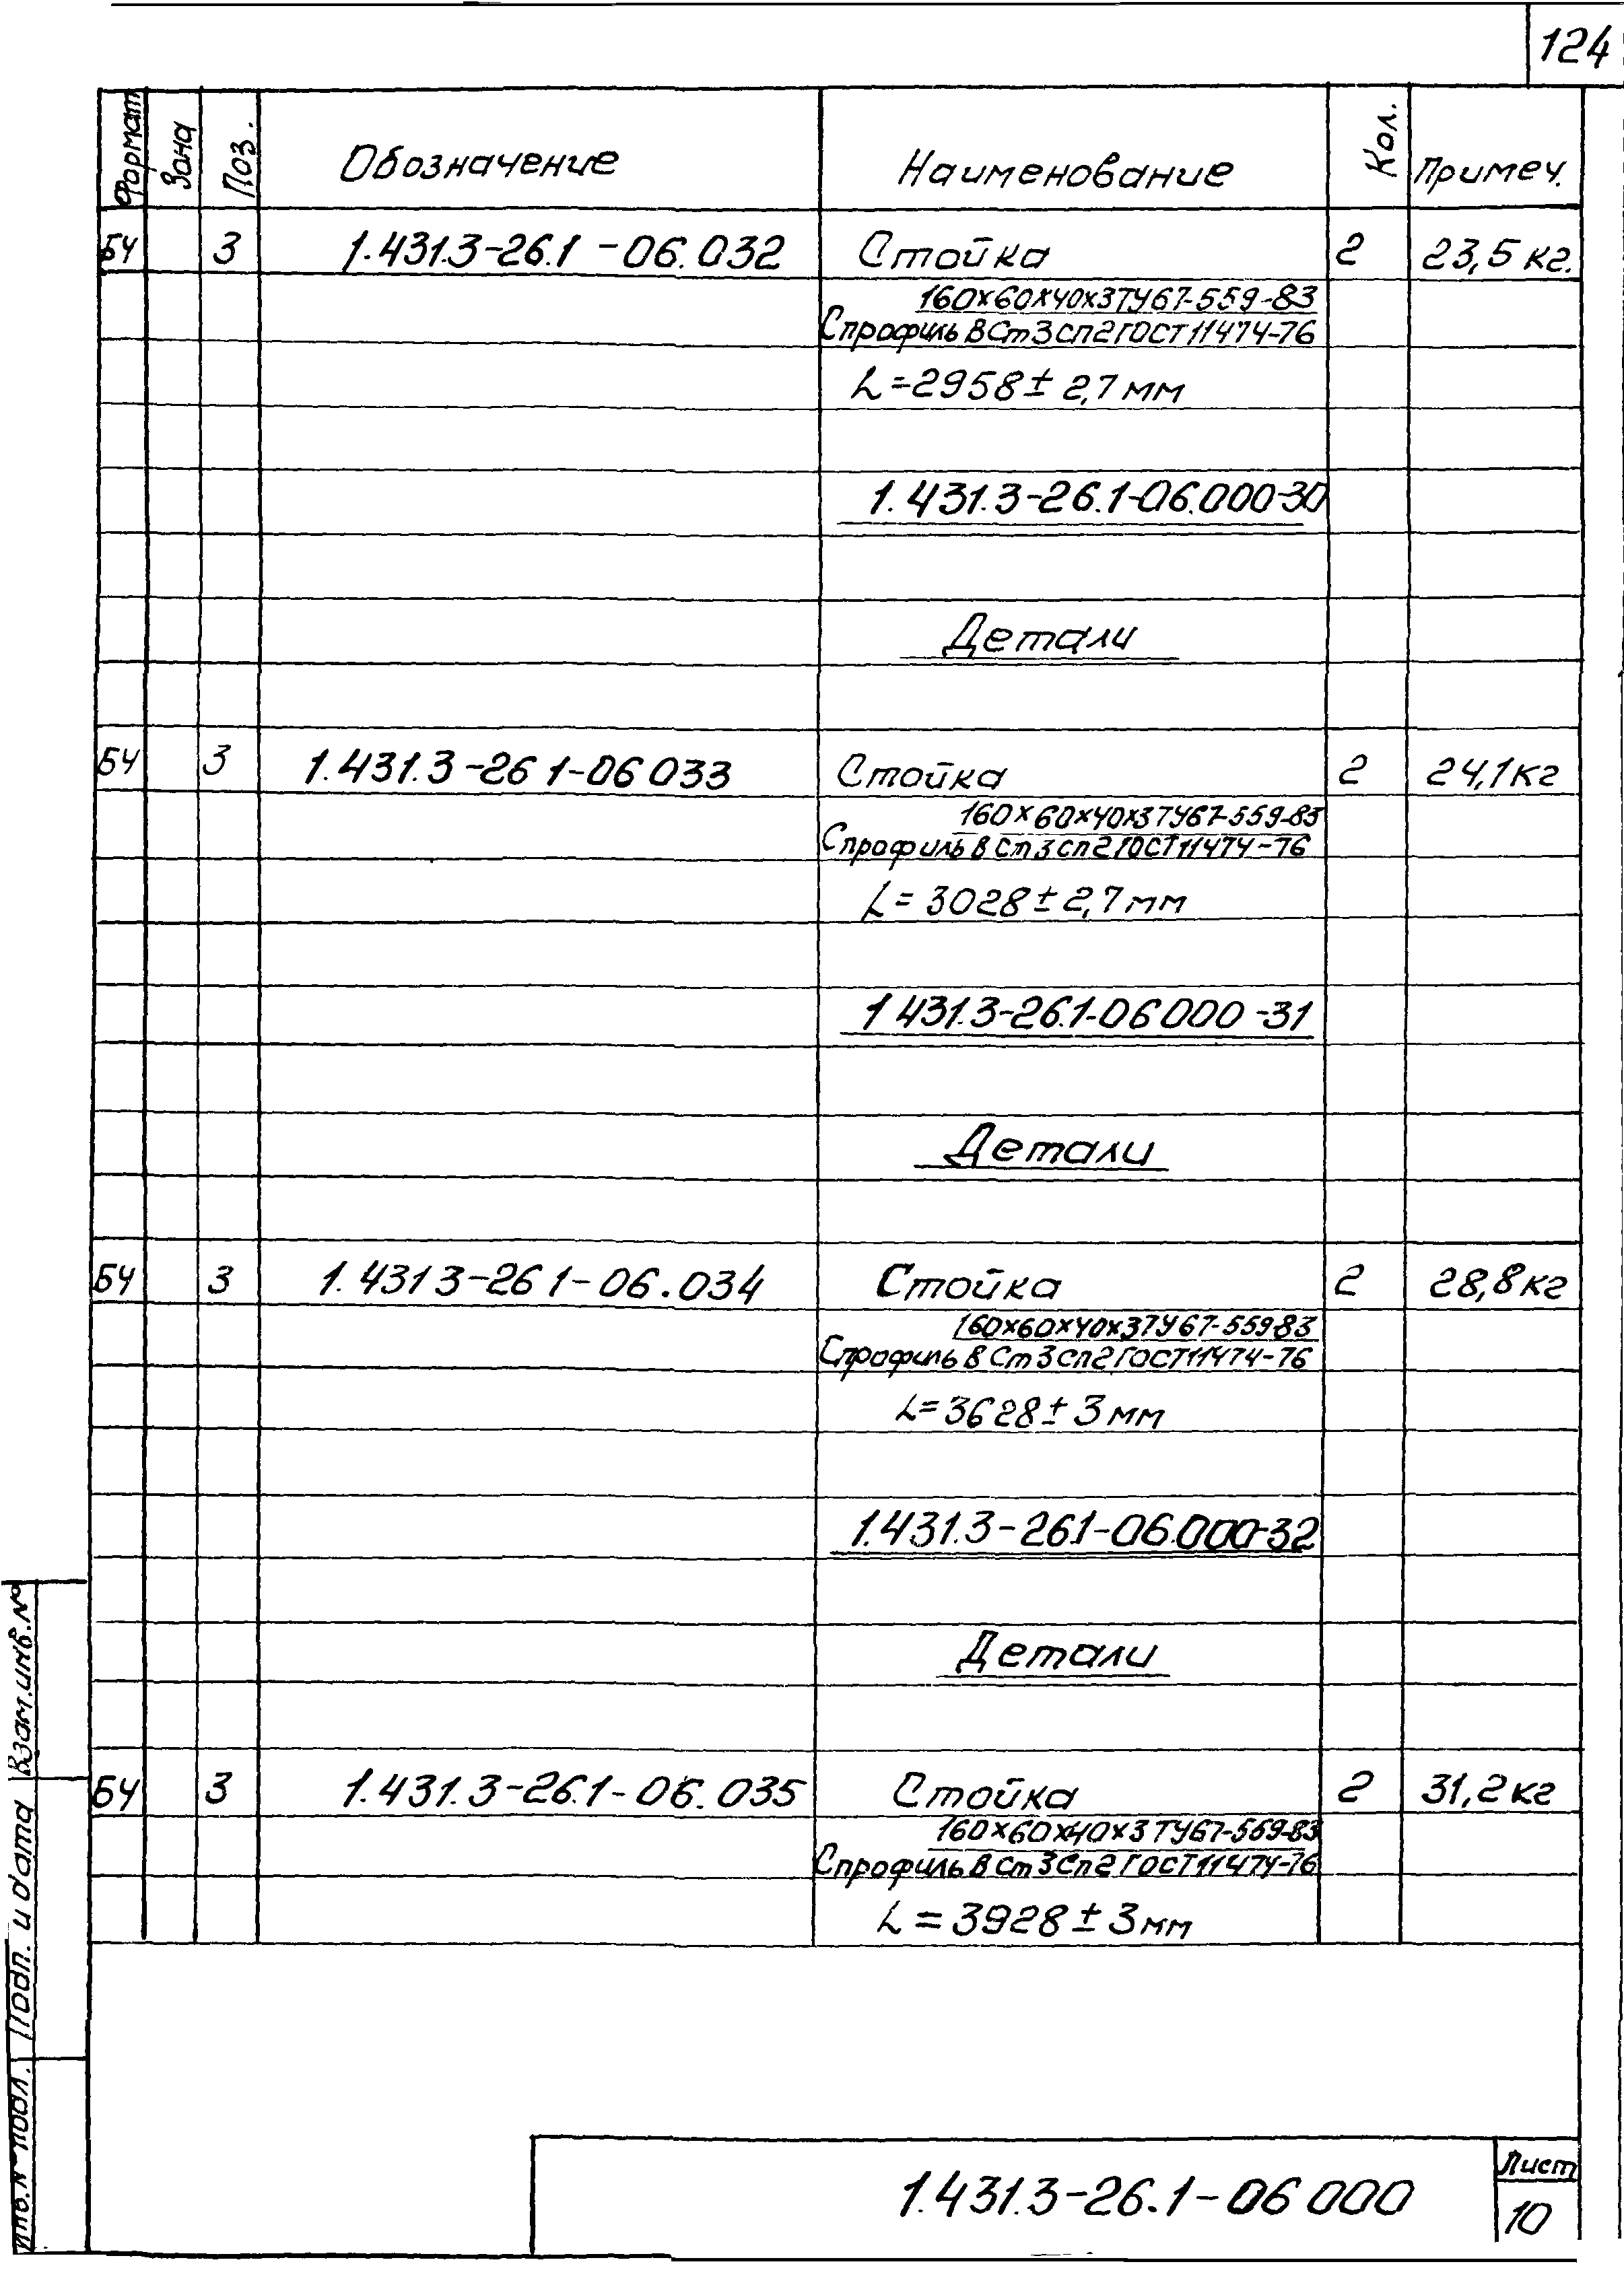 124
Формат Зона Поз. Обозначение Наименование Кол. Примеч.
БЧ 3 1.431.3-26.1-06.032 Стойка 2 23,5 кг.
160х60х40х3 ТУ67-559-83
Спрофиль В Ст3сп2 ГОСТ 11474-76
L=2958± 2,7 мм
1.431.3-26.1-06.000-30
Детали
БЧ 3 1.431.3-26 1-06 033 Стойка 2 24,1 кг
160х60х40х3 ТУ67-559-83
Спрофиль В Ст3сп2 ГОСТ 11474-76
L= 3028± 2,7 мм
1 431.3-26.1-06 000 -31
Детали
БЧ 3 1. 431 3-26 1-06.034 Стойка 2 28,8 кг
160х60х40х3 ТУ67-559 83
Спрофиль В Ст3сп2 ГОСТ 11474-76
L=3628± 3 мм
1.431.3-26.1-06.000-32
Детали
БЧ 3 1.431.3-26.1-06.035 Стойка 2 31,2 кг
160х60х40х3 ТУ67-569-83
Спрофиль В Ст3Сп2 ГОСТ 11474-76
L=3928±3 мм
Взам.инв.№
Подп. и дата
Инв.№ подл.
1.431.3-26.1-06 000
Лист
10